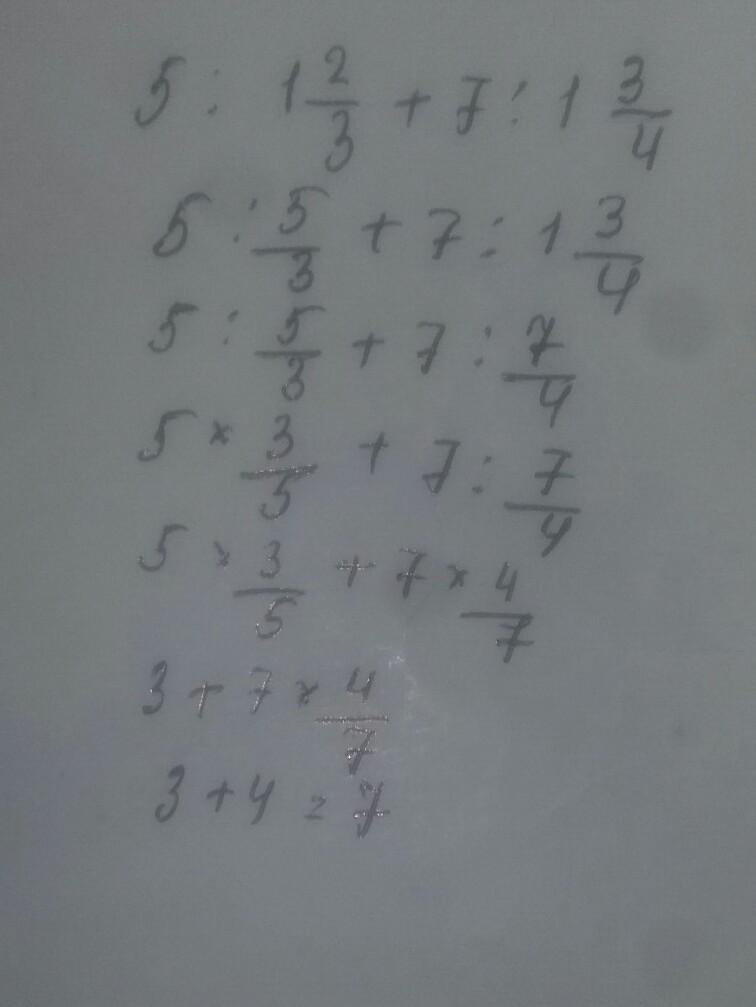 5 : 1 2/3 + 7 : 1 3/4
5 : 5/3 + 7 : 1 3/4
5 : 5/3 + 7 : 7/4
5 × 3/5 + 7 : 7/4
5 × 3/5 + 7 × 4/7
3 + 7 × 4/7
3 + 4 = 7